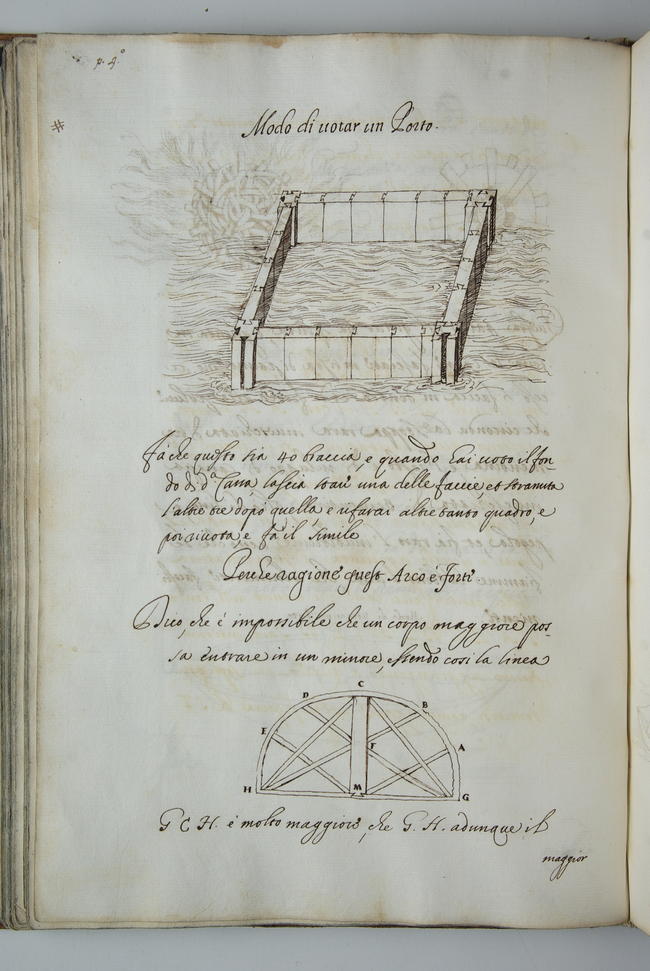 p. 4°
Modo di uotar un Porto.
Fà che questo sia 40 braccia, e quando hai uoto il fon-
do di d.ª Cassa, lascia star una delle faccie, et stramuta
l'altre tre dopo quella, e rifarai altre tanto quadro, e
poi riuota, e fà il simile
Perche ragione quest Arco è forte
Dico, che è impossibile che un corpo maggiore pos-
sa entrare in un minore, essendo cosi la linea
C
D B
E A
F
H M G
G C H. è molto maggiore, che G. H. adunque il
maggior